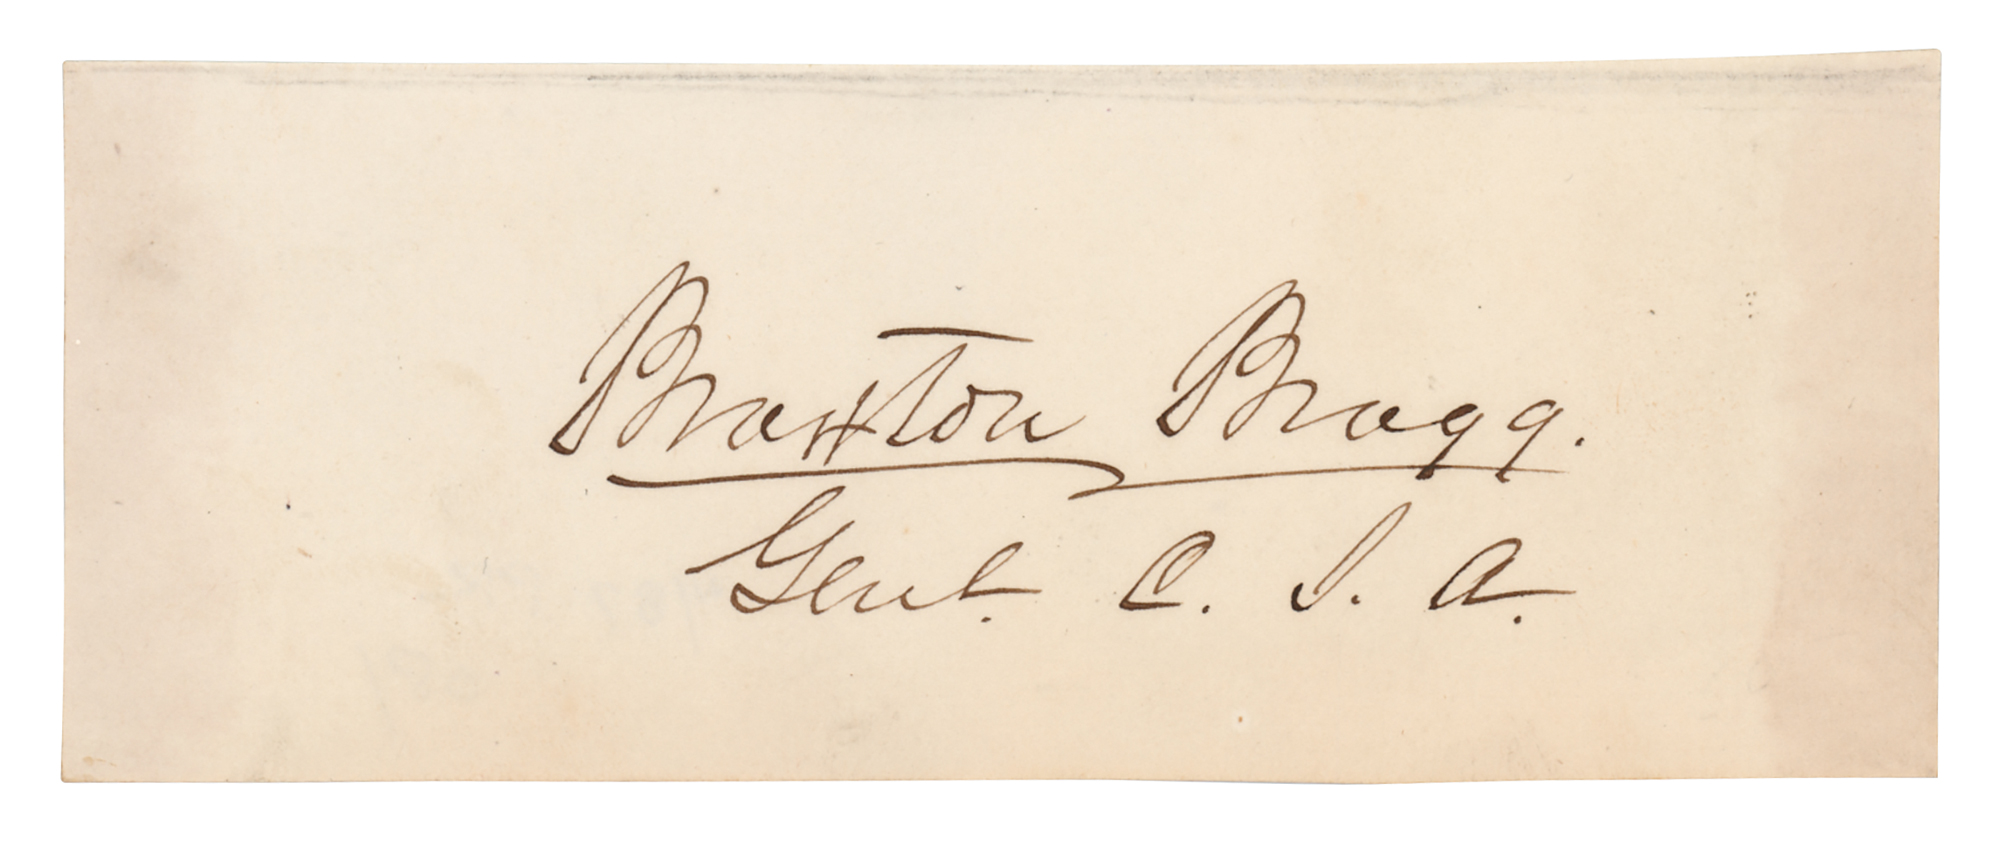 Braxton Bragg.
Genl. C. S. A.